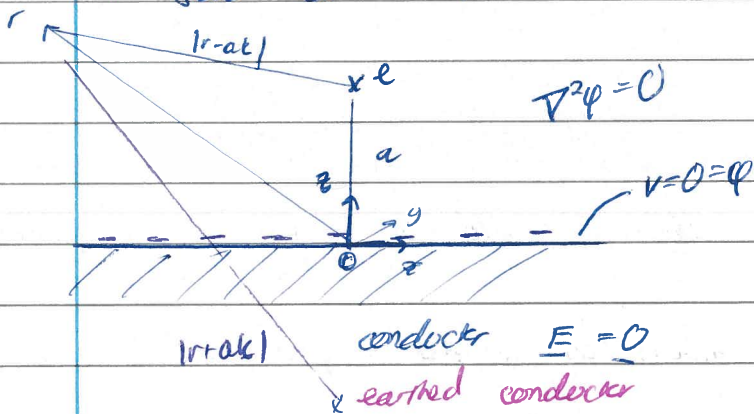 r
|r-ak|
x e
∇²φ=0
a
z
v=0=φ
y
O
x
|r+ak|
conductor E = 0
x earthed conductor